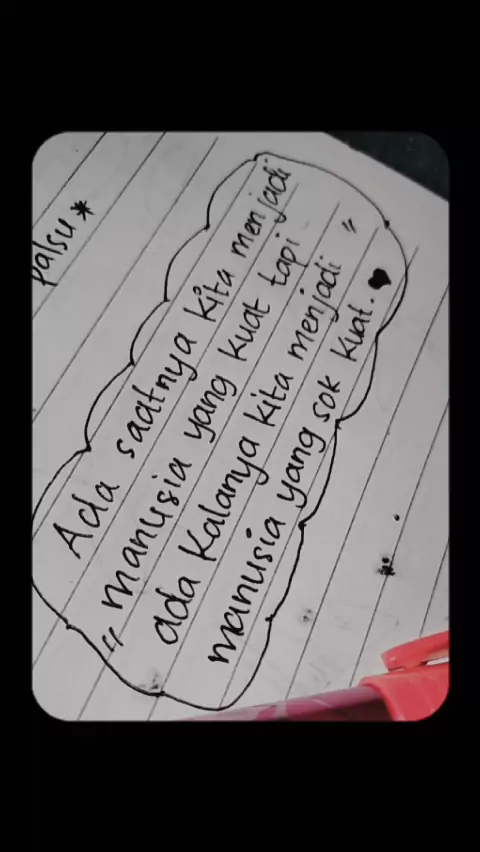 palsu *
Ada saatnya kita menjadi
" manusia yang kuat tapi
ada kalanya kita menjadi "
manusia yang sok kuat. ♥